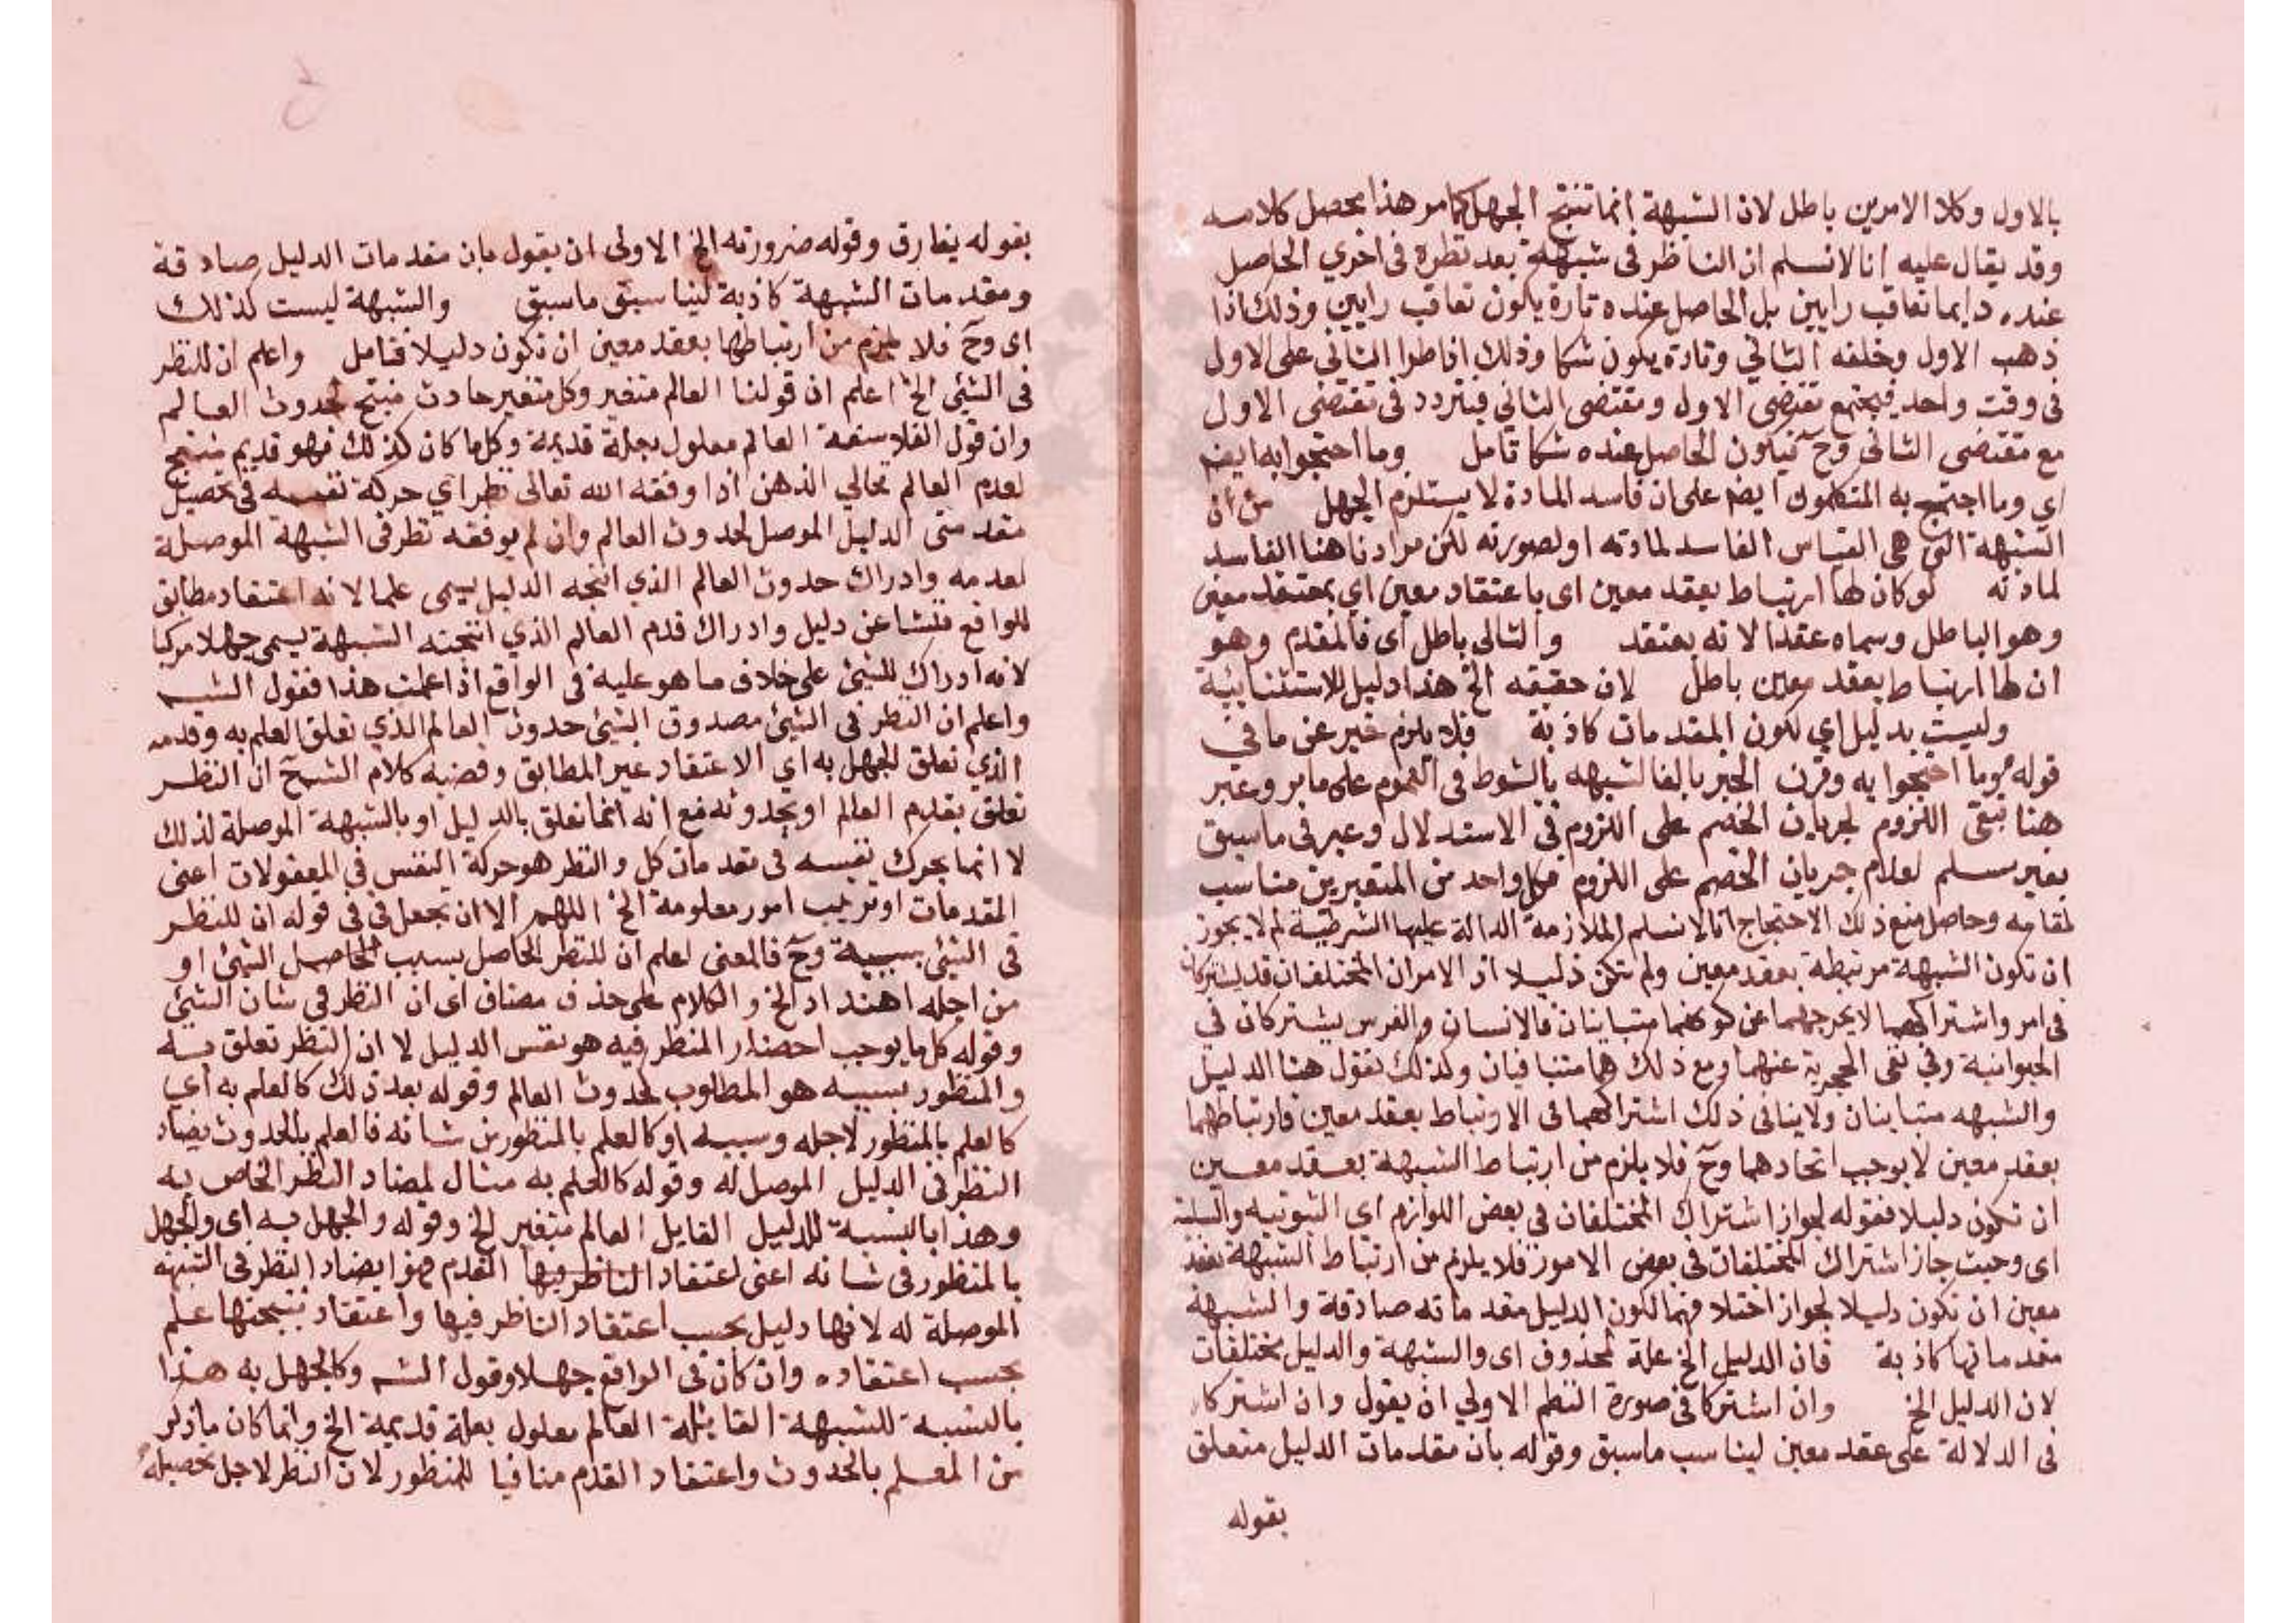 بالاول وكلا الامرين باطل لان الشبهة انما تنتج الجهل كما مر هذا محصل كلامه
وقد يقال عليه انا لا نسلم ان الناظر فى شبهة بعد نظره فى اخري الحاصل
عنده دايما تعاقب رايين بل الحاصل عنده تارة يكون تعاقب رايين وذلك اذا
ذهب الاول وخلفه الثاني وتارة يكون شكا وذلك اذا طرا الثانى على الاول
فى وقت واحد فيجتمع مقتضى الاول ومقتضى الثاني فيتردد فى مقتضى الاول
مع مقتضى الثانى وح فيكون الحاصل عنده شكا تامل وما احتجوا به ايضم
اي وما احتج به المتكلمون ايضم على ان فاسد المادة لا يستلزم الجهل من ان
الشبهة التي هي القياس الفاسد لمادته او لصورته لكن مرادنا هنا الفاسد
لمادته لو كان لها ارتباط بعقد معين اى باعتقاد معين اي بمعتقد معين
وهو الباطل وسماه عقدا لانه يعتقد والتالى باطل اى فالمقدم وهو
ان لها ارتباط بعقد معين باطل لان حقيقه الخ هذا دليل للاستثنايية
وليست بدليل اي لكون المقدمات كاذبة فلا يلزم خبر عن ما في
قوله وما احتجوا به وقرن الخبر بالفا لشبهه بالشرط فى العموم على ما مر وعبر
هنا بنفى اللزوم لجريان الخصم على اللزوم فى الاستدلال وعبر فى ما سبق
بغير مسلم لعدم جريان الخصم على اللزوم فكل واحد من التعبيرين مناسب
لمقامه وحاصل منع ذلك الاحتجاج انا لا نسلم الملازمة الدالة عليها الشرطية لم لا يجوز
ان تكون الشبهة مرتبطة بعقد معين ولم تكن دليلا اذ الامران المختلفان قد يشتركان
فى امر واشتراكهما لا يخرجهما عن كونهما متباينان فالانسان والفرس يشتركان في
الحيوانية وفي نفى الحجرية عنهما ومع ذلك هما متنافيان وكذلك نقول هنا الدليل
والشبهه متباينان ولا ينافى ذلك اشتراكهما فى الارتباط بعقد معين فارتباطهما
بعقد معين لا يوجب اتحادهما وح فلا يلزم من ارتباط الشبهة بعقد معين
ان تكون دليلا فقوله لجواز اشتراك المختلفان في بعض اللوازم اى الثبوتيه والسلبية
اى وحيث جاز اشتراك المختلفات في بعض الامور فلا يلزم من ارتباط الشبهة بعقد
معين ان تكون دليلا لجواز اختلافهما لكون الدليل مقدماته صادقة والشبهة
مقدماتها كاذبة فان الدليل الخ علة لمحذوف اى والشبهة والدليل مختلفات
لان الدليل الخ وان اشتركا فى صورة النظم الاولي ان يقول وان اشتركا
فى الدلالة على عقد معين ليناسب ما سبق وقوله بان مقدمات الدليل متعلق
بقوله
بقوله يفارق وقوله ضرورته الخ الاولى ان يقول بان مقدمات الدليل صادقة
ومقدمات الشبهة كاذبة ما سبق والشبهة ليست كذلك
اى وح فلا يلزم من ارتباطها بعقد معين ان تكون دليلا فتامل واعلم ان للنظر
فى الشيئ الخ اعلم ان قولنا العالم متغير وكل متغير حادث منتج لحدوث العالم
وان قول الفلاسفة العالم معلول بعلة قديمة وكل ما كان كذلك فهو قديم منتج
لعدم العالم فخالي الذهن اذا وفقه الله تعالى نظر اي حركة نفسه فى تحصيل
مقدمتى الدليل الموصل لحدوث العالم وان لم يوفقه نظر فى الشبهة الموصلة
لعدمه وادراك حدوث العالم الذي انتجه الدليل يسمى علما لانه اعتقاد مطابق
للواقع فنشا عن دليل وادراك قدم العالم الذي انتجته الشبهة يسمى جهلا مركبا
لانه ادراك للشيئ على خلاف ما هو عليه فى الواقع اذا علمت هذا فقول الشم
واعلم ان النظر فى الشيئ مصدوق الشيئ حدوث العالم الذي تعلق العلم به وقدمه
الذي تعلق الجهل به اي الاعتقاد غير المطابق وقضية كلام الشيخ ان النظر
تعلق بقدم العالم او بحدوثه مع انه انما تعلق بالدليل او بالشبهة الموصلة لذلك
لا انما يحرك نفسه فى مقدمات كل والنظر هو حركة النفس في المعقولات اعنى
المقدمات او ترتيب امور معلومة الخ اللهم الا ان تجعل في فى قوله ان للنظر
فى الشيئ سببية وح فالمعنى اعلم ان للنظر الحاصل بسبب الحاصل الشيئ او
من اجله اهنداد الخ والكلام على حذف مضاف اى ان النظر في شان الشيئ
وقوله كل ما يوجب احضار المنظر فيه هو نفس الدليل لا ان النظر تعلق به
والمنظور بسببه هو المطلوب لحدوث العالم وقوله بعد ذلك كالعلم به اي
كالعلم بالمنظور لاجله وسببه او كالعلم بالمنظور من شانه فالعلم بالحدوث يضاد
النظر فى الدليل الموصل له وقوله كالعلم به مثال لمضاد النظر الخاص به
وهذا بالنسبة للدليل القايل العالم متغير الخ وقوله والجهل به اى والجهل
بالمنظور فى شانه اعنى اعتقاد الناظر فيها القدم فهو ايضاد النظر فى الشبهة
الموصلة له لانها دليل بحسب اعتقاد الناظر فيها واعتقاد نتيجتها علم
بحسب اعتقاده وان كان فى الواقع جهلا وقول الشم وكالجهل به هذا
بالنسبة للشبهة القايلة العالم معلول بعلة قديمة الخ وانما كان ما ذكر
من العلم بالحدوث واعتقاد القدم منافيا للمنظور لان النظر لاجل تحصيله